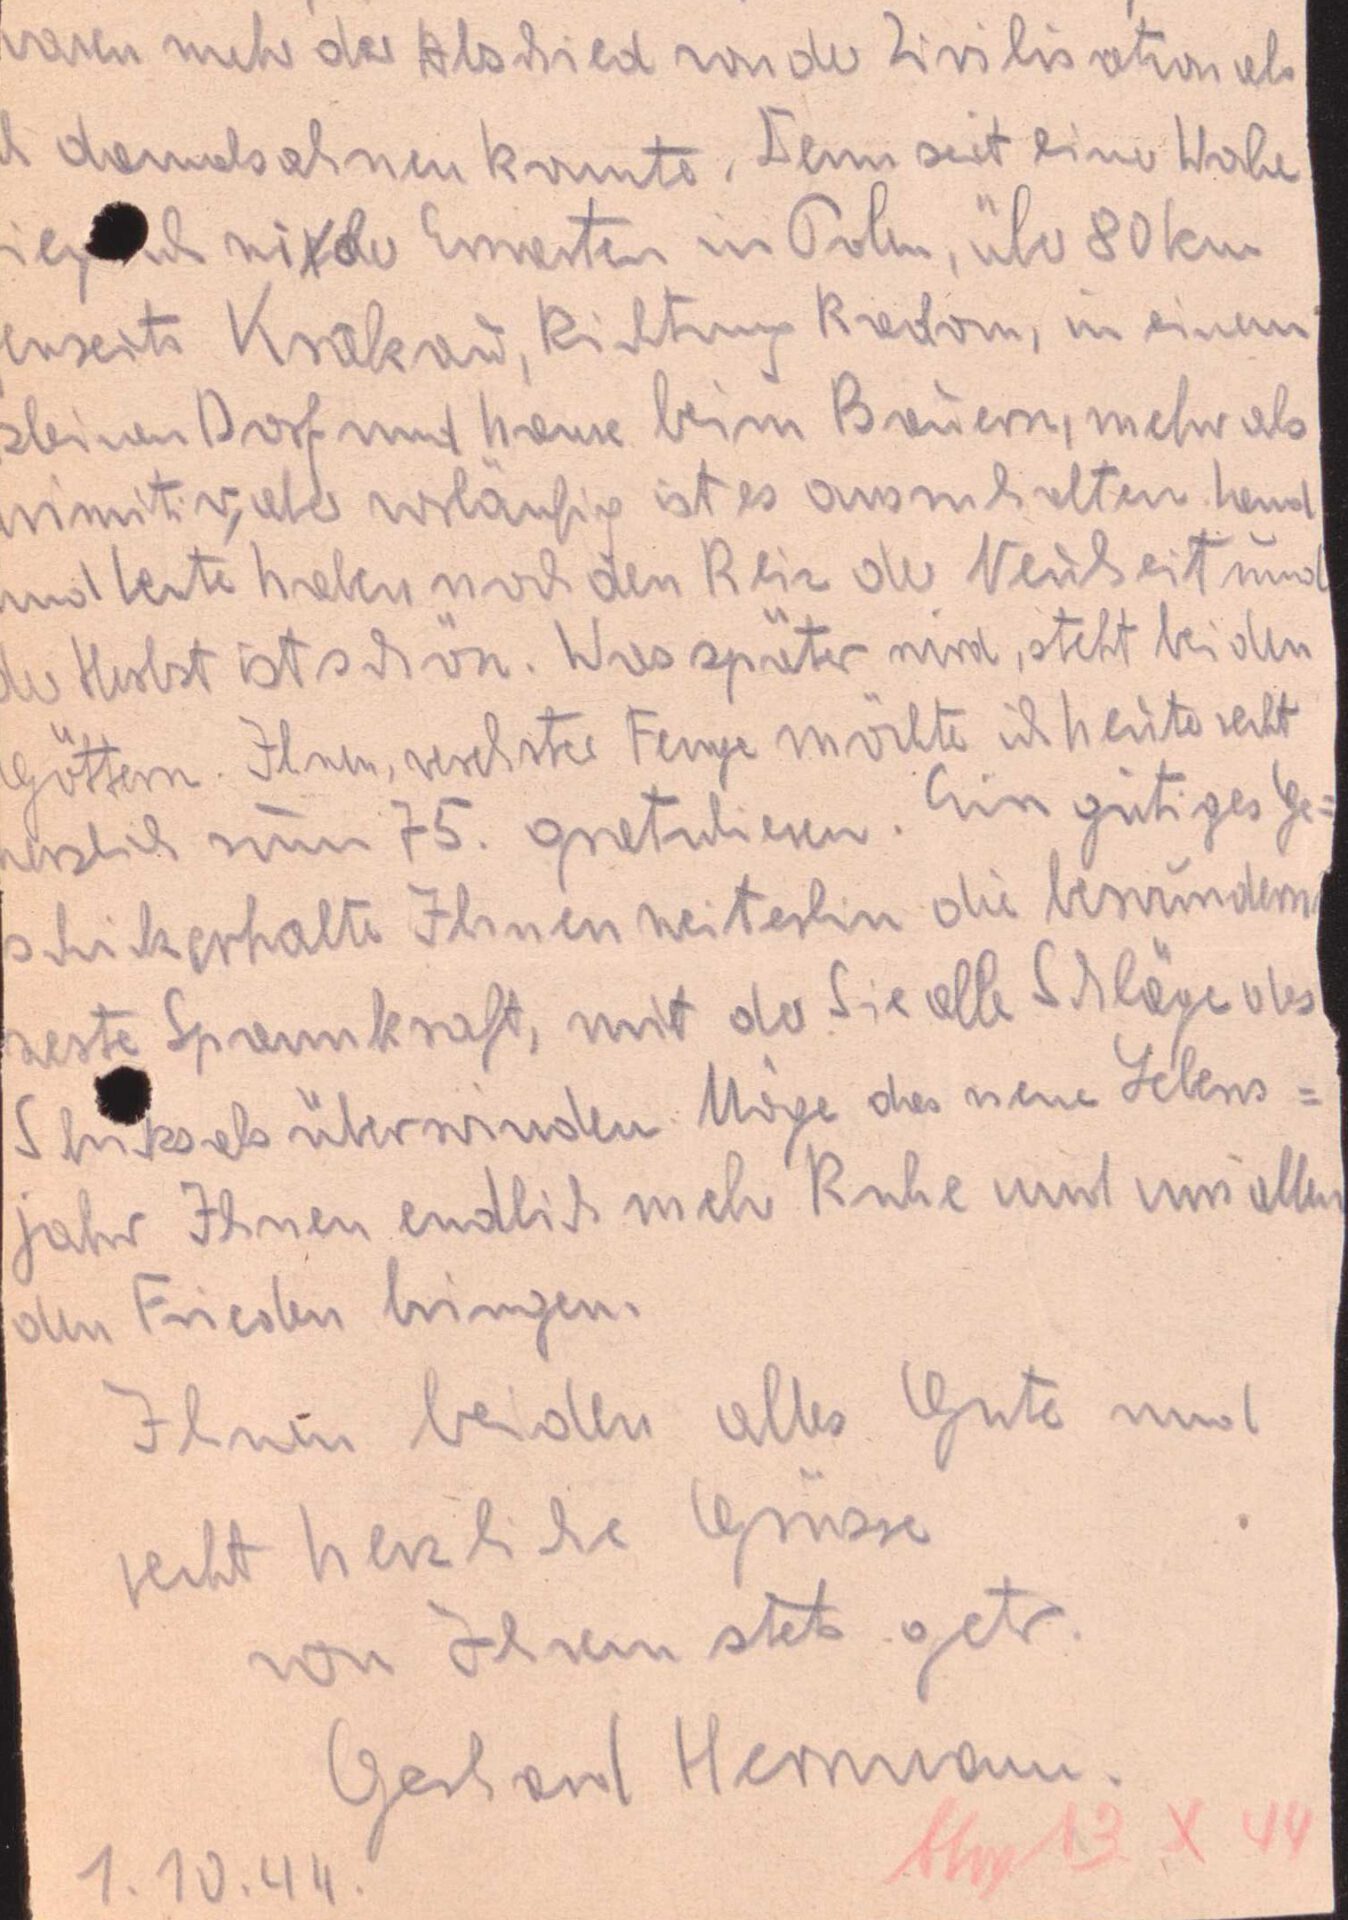 waren mehr der Abschied von der Zivilisation als
ich damals ahnen konnte. Denn seit einer Woche
liege ich wider Erwarten in Polen, über 80 km
jenseits Krakau, Richtung Radom, in einem
kleinen Dorf und hause beim Bauern, mehr als
primitiv, aber vorläufig ist es auszuhalten. Land
und Leute haben noch den Reiz der Neuheit und
der Herbst ist schön. Was später wird, steht bei den
Göttern. Ihnen, verehrter Fenge möchte ich heute recht
herzlich zum 75. gratulieren. Ein gütiges Ge=
schick erhalte Ihnen weiterhin die bewunderns
werte Spannkraft, mit der Sie alle Schläge des
Schicksals überwinden. Möge das neue Lebens=
jahr Ihnen endlich mehr Ruhe und uns allen
den Frieden bringen.
Ihnen beiden alles Gute und
recht herzliche Grüsse
von Ihrem stets getr.
Gerhard Herrmann.
1.10.44.
13 X 44